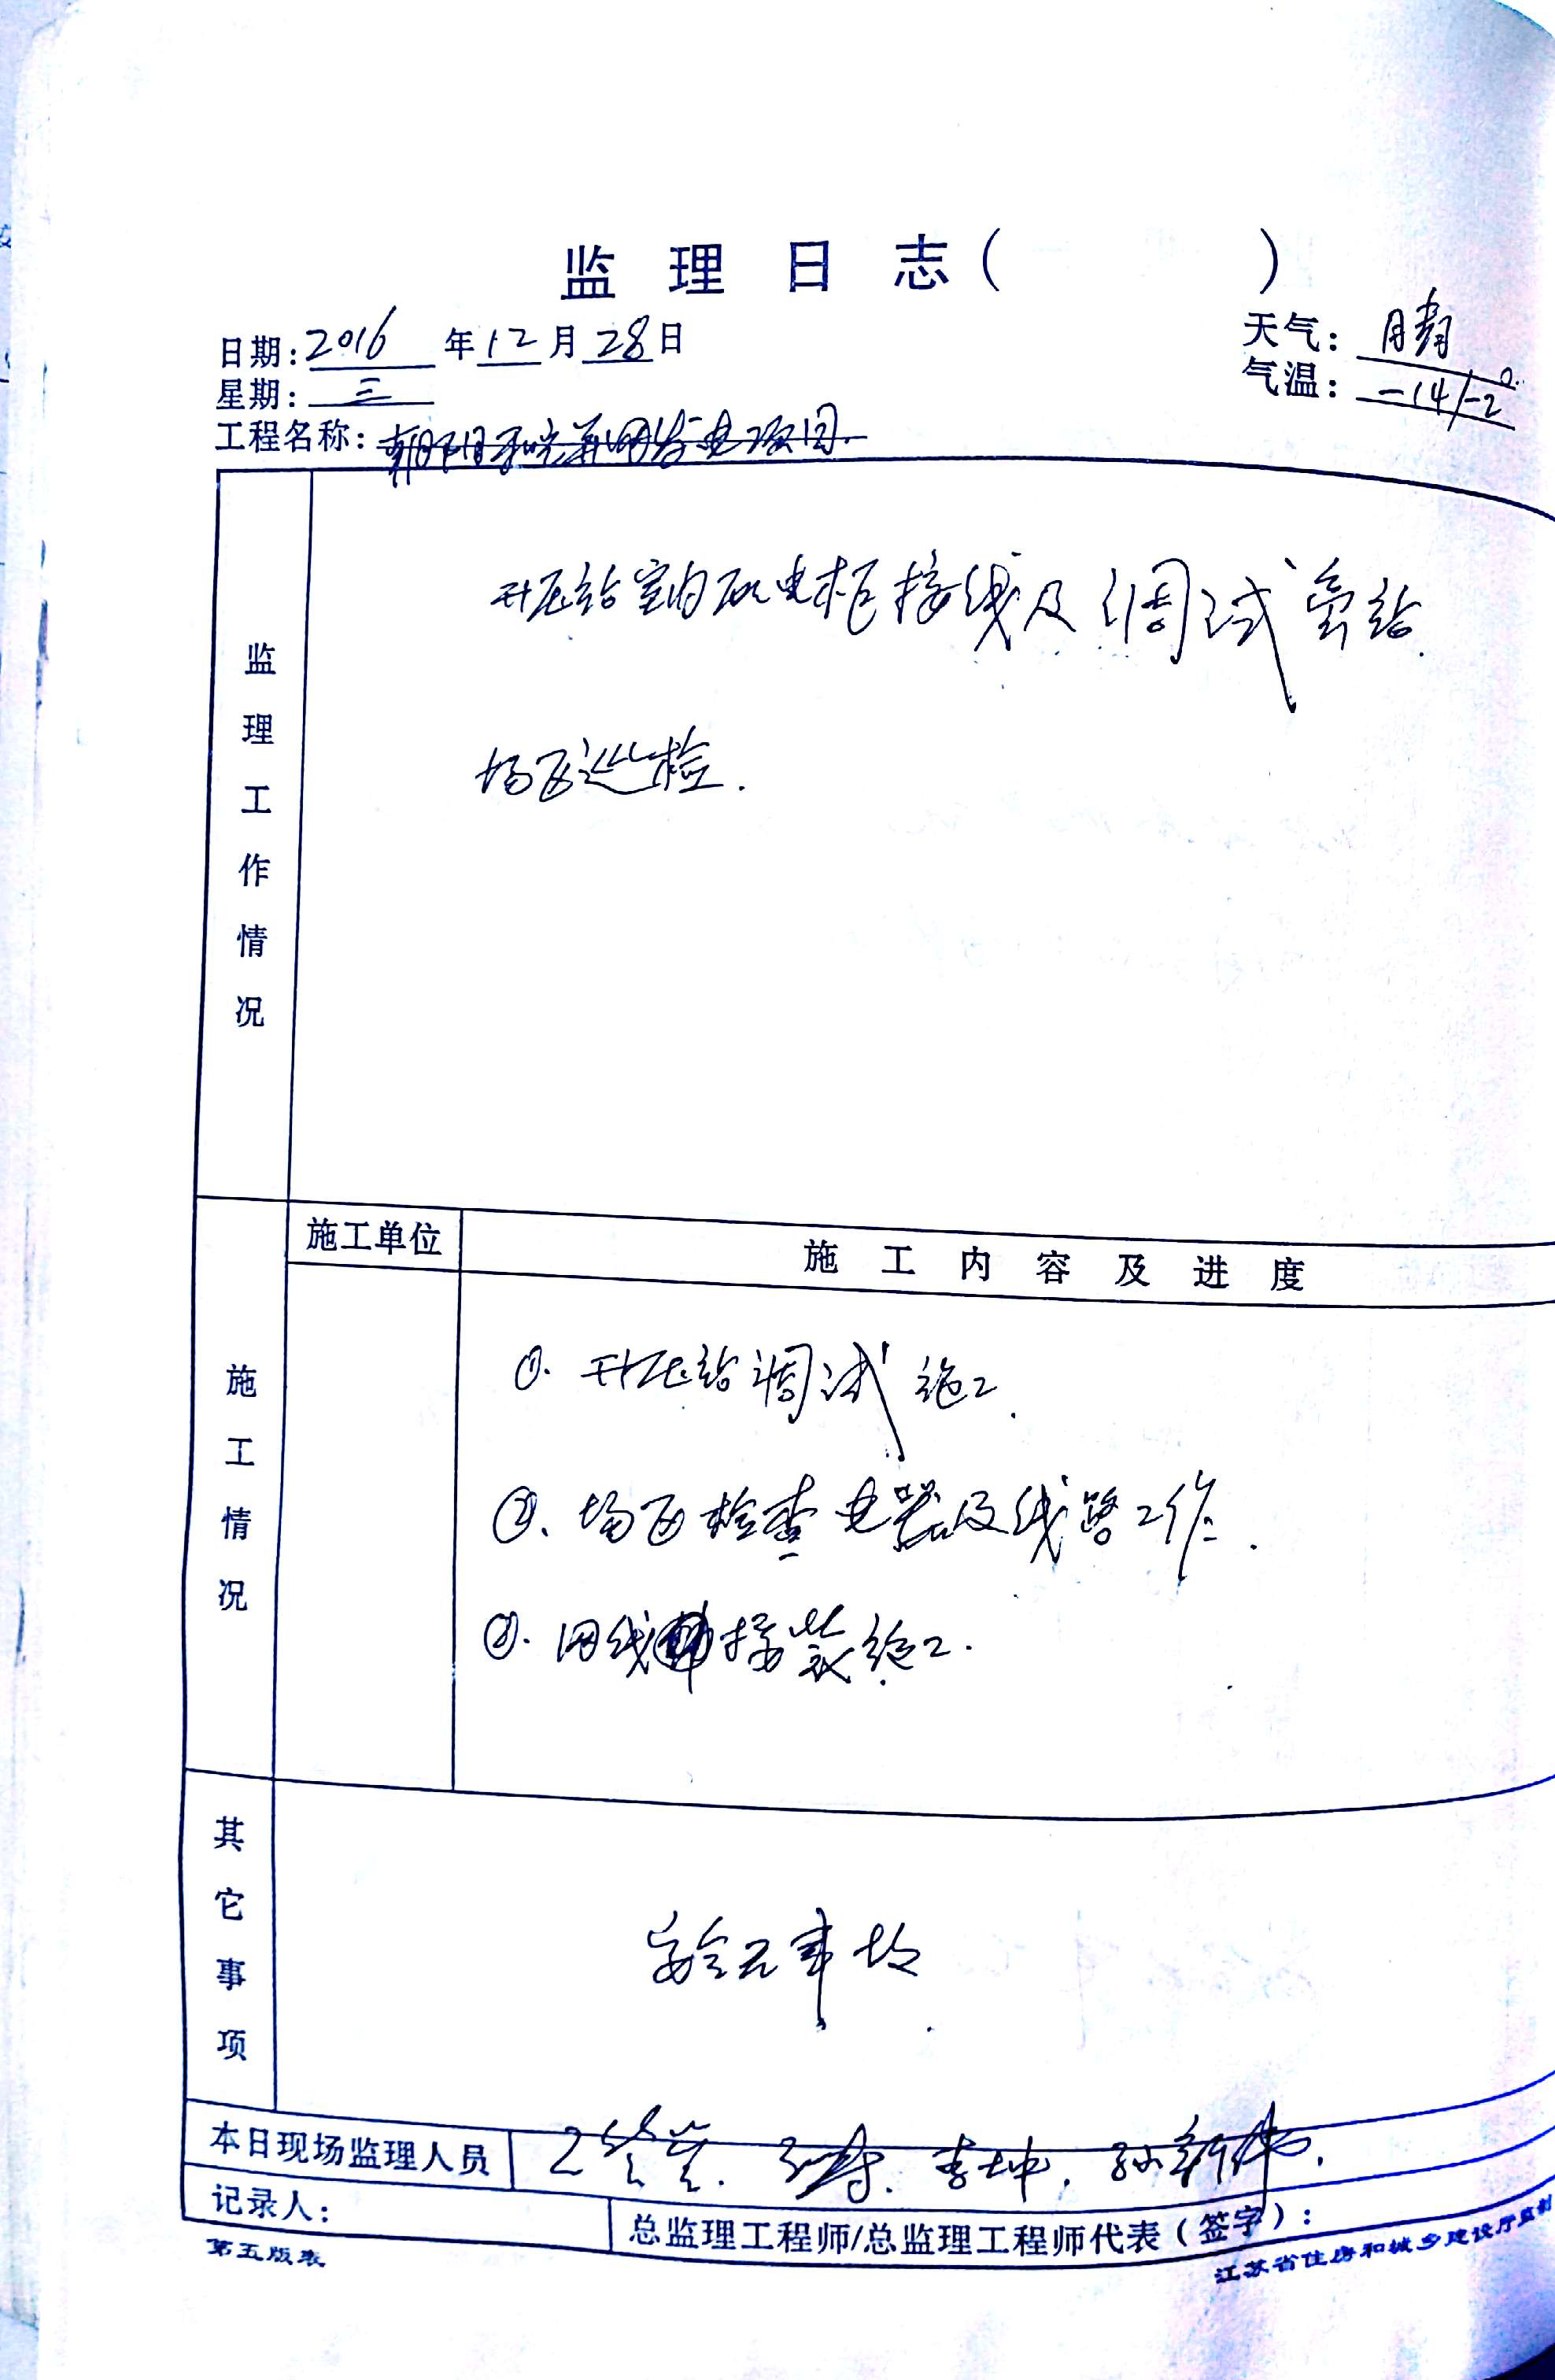 监理日志（ ）
日期：2016年12月28日
天气：晴
星期：三
气温：-14/-2
工程名称：朝阳 并网发电项目
监理工作情况
升压站室内配电柜接线及调试旁站.
场区巡检.
施工单位
施工内容及进度
施工情况
①. 升压站调试施工.
②. 场区检查电器及线路工作.
③. 网线 接装施工.
其它事项
安全无事故.
本日现场监理人员
李坤. 孙新伟.
记录人：
总监理工程师/总监理工程师代表（签字）：
第五版表
江苏省住房和城乡建设厅监制